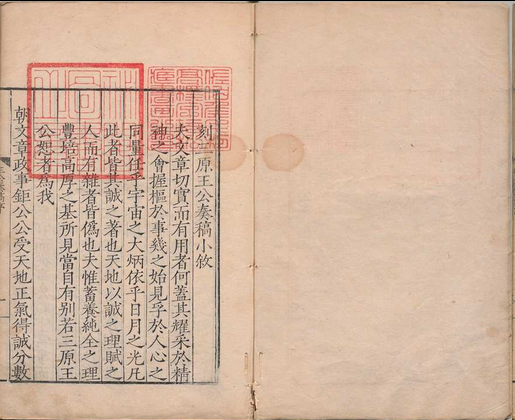 刻三原王公奏稿小敘
夫文章切實而有用者何蓋其耀采於精
神之會握樞於事幾之始見乎於人心之
同量任乎宇宙之大炳依乎日月之光凡
此者皆其誠之著也天地以誠之理賦之
人而有雜者皆偽也夫惟蓄養純全之理
豐培高厚之基所見當自有別若三原王
公恕者為我
朝文章政事鉅公公受天地正氣得誠分數